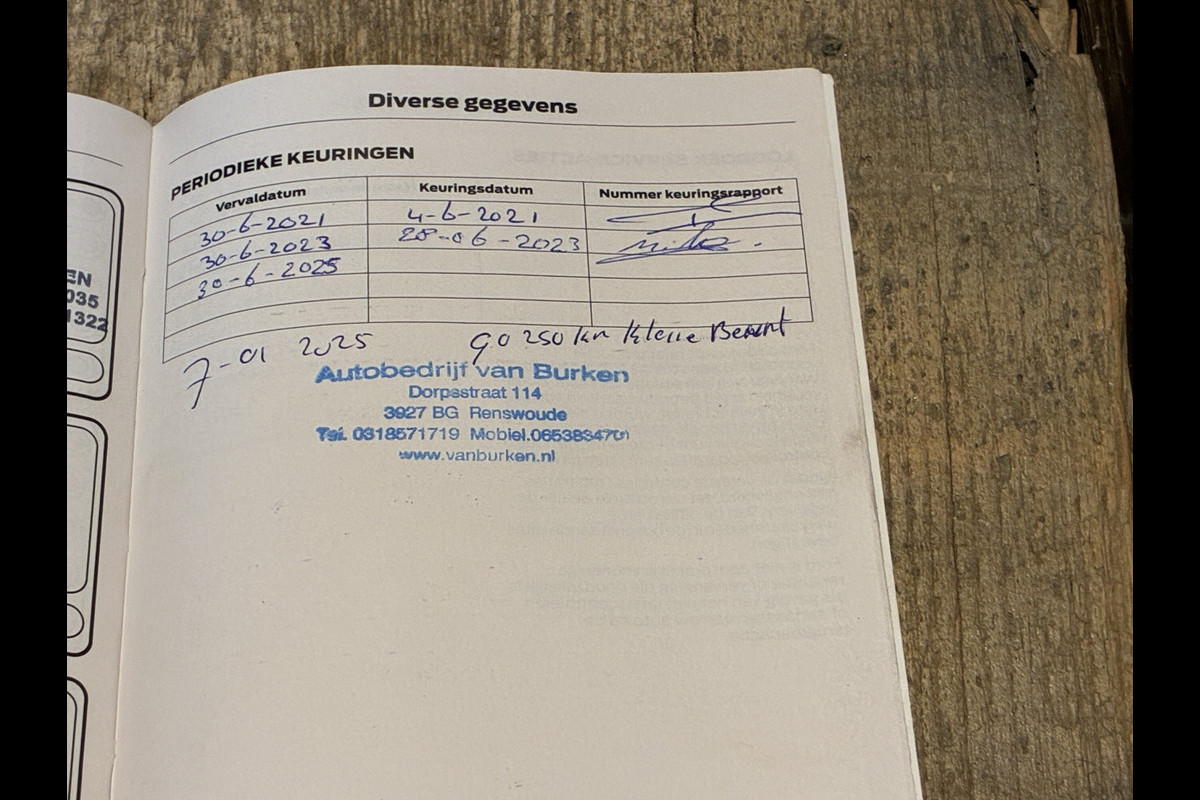 Diverse gegevens
PERIODIEKE KEURINGEN
Vervaldatum Keuringsdatum Nummer keuringsrapport
30-6-2021 4-6-2021
30-6-2023 28-06-2023
30-6-2025
7-01 2025 90250 km kleine Beurt
Autobedrijf van Burken
Dorpsstraat 114
3927 BG Renswoude
Tel. 0318571719 Mobiel.
www.vanburken.nl
EN
035
1322